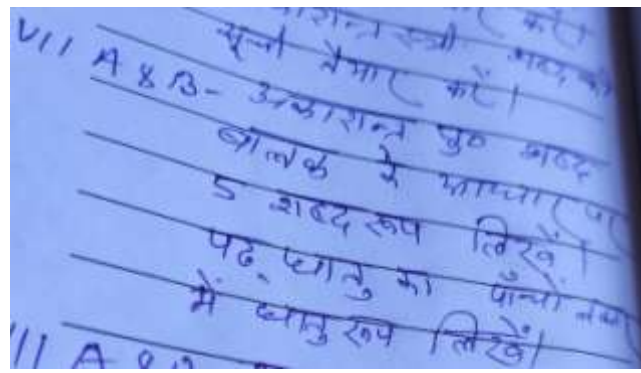 कारान्त स्त्री शब्द की
सूची तैयार करें।
VII A & B- अकारान्त पु० शब्द
बालक के आधार पर
5 शब्द रूप लिखें।
पठ् धातु का पाँचों लकार
में धातु रूप लिखें।
III A & B